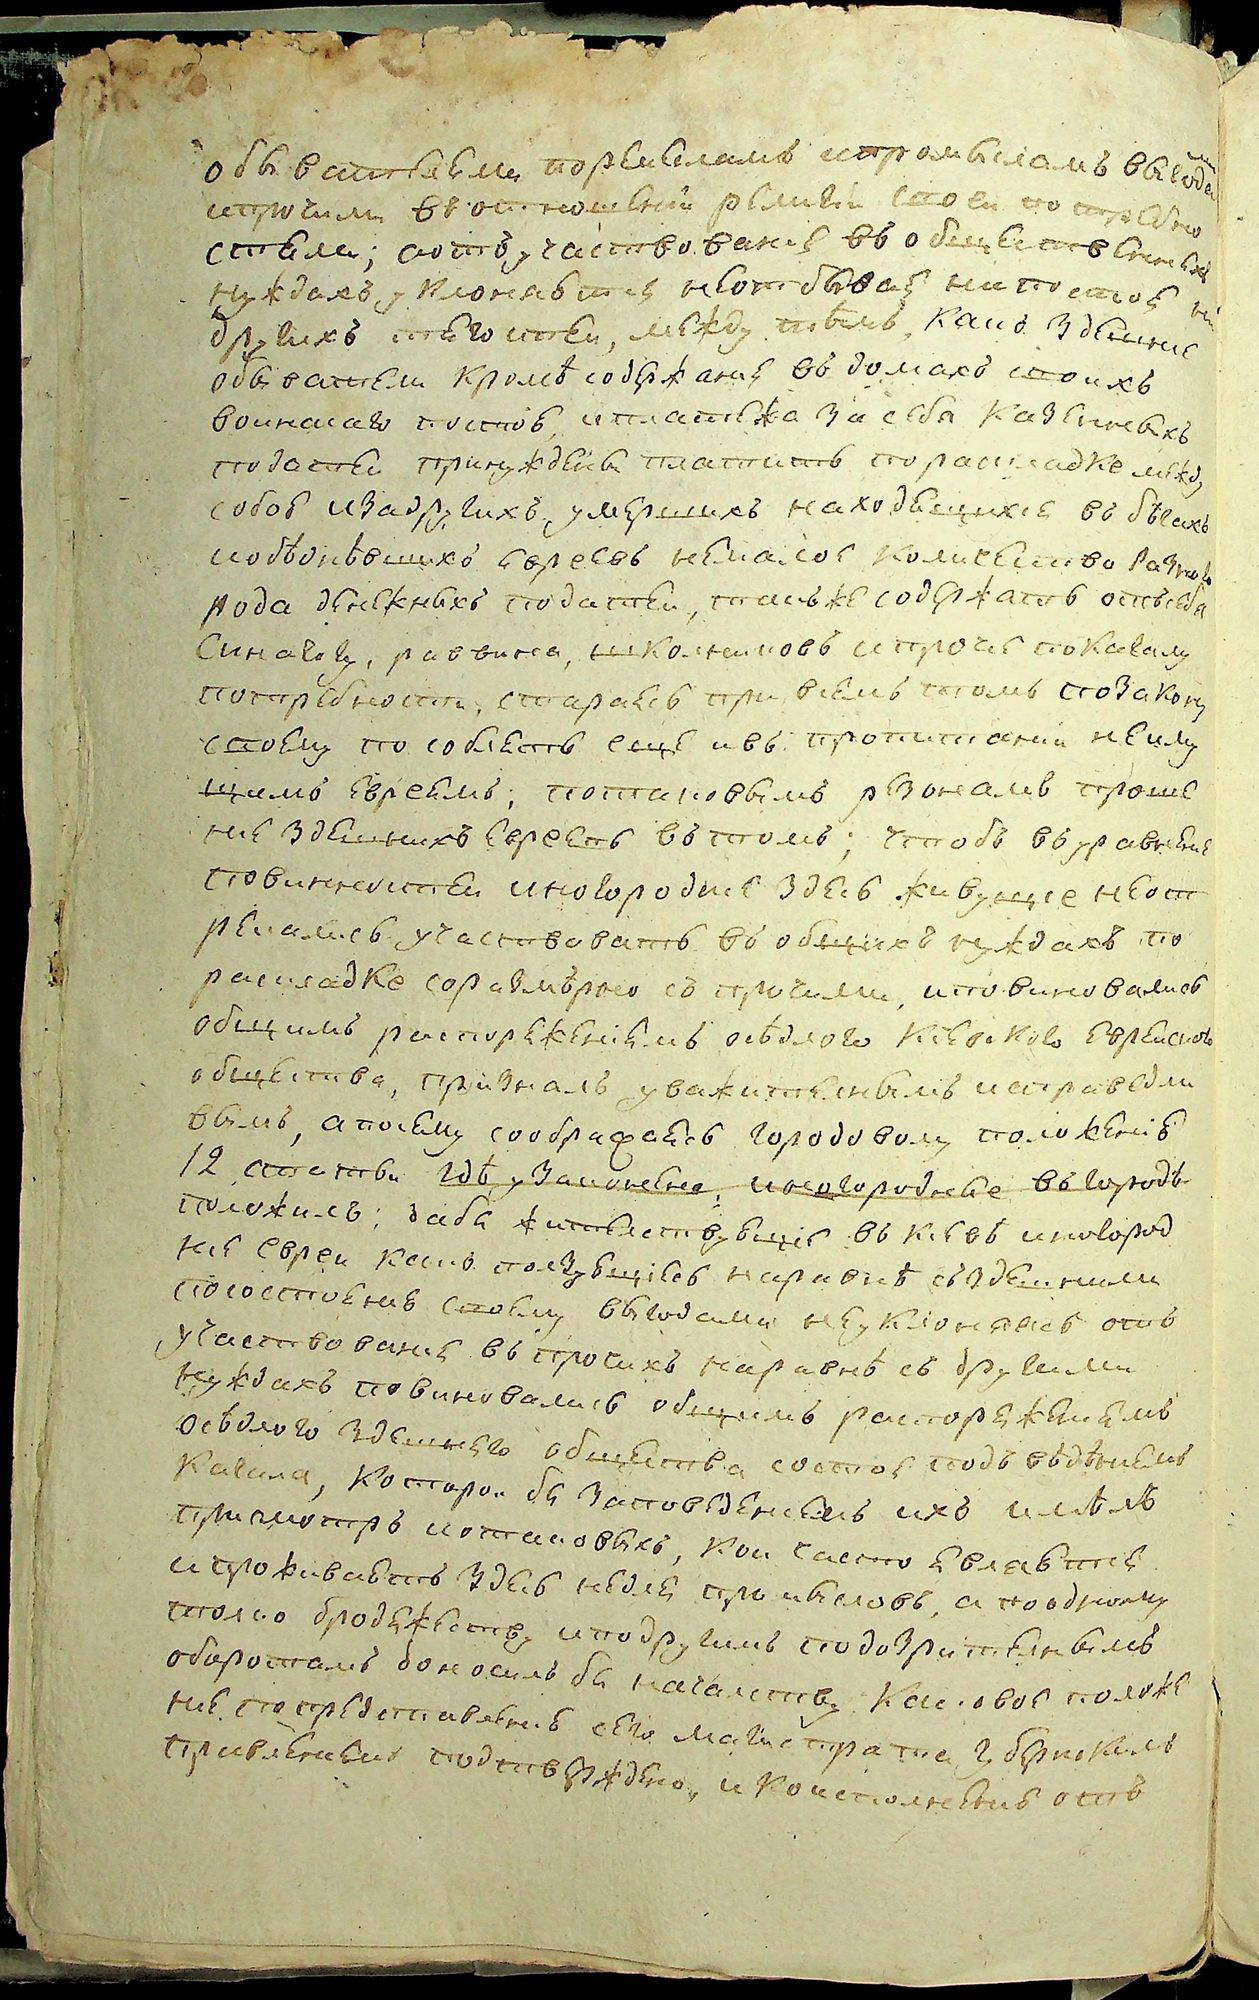 обывателями поремесламъ ипромысламъ выгода
ипрочими въотношеніи религіи своей потребно
стьми; аотъ участвованія въ общественныхъ
нуждахъ уклоняются неотбывая нипостоя ни
другихъ тягостей, между тѣмъ, какъ здешніе
обыватели кромѣ содержанія въ домахъ своихъ
воинскаго постоя, иплатежа за себя казенныхъ
податей принуждены платить пораскладке между
собою изадругихъ умершихъ находящихся въ бѣгахъ
иобѣднѣвшихъ евреевъ немалое количество разнаго
рода денежныхъ податей, такъже содержать отъсебя
синагогу, раввина, школьниковъ ипрочіе покагалу
потребности, стараясь при всемъ томъ позакону
своему пособлять еще ивъ пропитаніи неиму
щимъ евреямъ; потаковымъ резонамъ проше
ніе здешнихъ евреевъ въ томъ; чтобъ въуравненіе
повинностей иногородные здесь живущіе неот
рекались участвовать въ общихъ нуждахъ по
раскладке соразмѣрно съ прочими, иповиновались
общимъ распоряженіямъ осѣдлого кіевского еврейского
общества, призналъ уважительнымъ исправедли
вымъ, апосему сообразуясь городовому положенію
12 статьи гдѣ узаконено: иногородные въ городѣ
положилъ: дабы жительствующіе въ кіевѣ иногород
ніе евреи какъ пользующіесь наравнѣ създешними
посостоянію своему выгодами неуклонялись отъ
участвованія въ прочихъ наравнѣ съ другими
нуждахъ повиновались общимъ распоряженіямъ
осѣдлого здешняго общества состоя подъ вѣдѣніемъ
кагала, которой бы заповеденіемъ ихъ имѣлъ
присмотръ иотаковыхъ, кои часто являются
ипроживаютъ здесь недля промысловъ, апоодному
толко бродяжеству иподругимъ подозрительнымъ
оборотамъ доносилъ бы начальству, каковое положе
ніе попредставленію сего магистрата губернскимъ
правленіемъ подтверждено, и коисполненію отъ